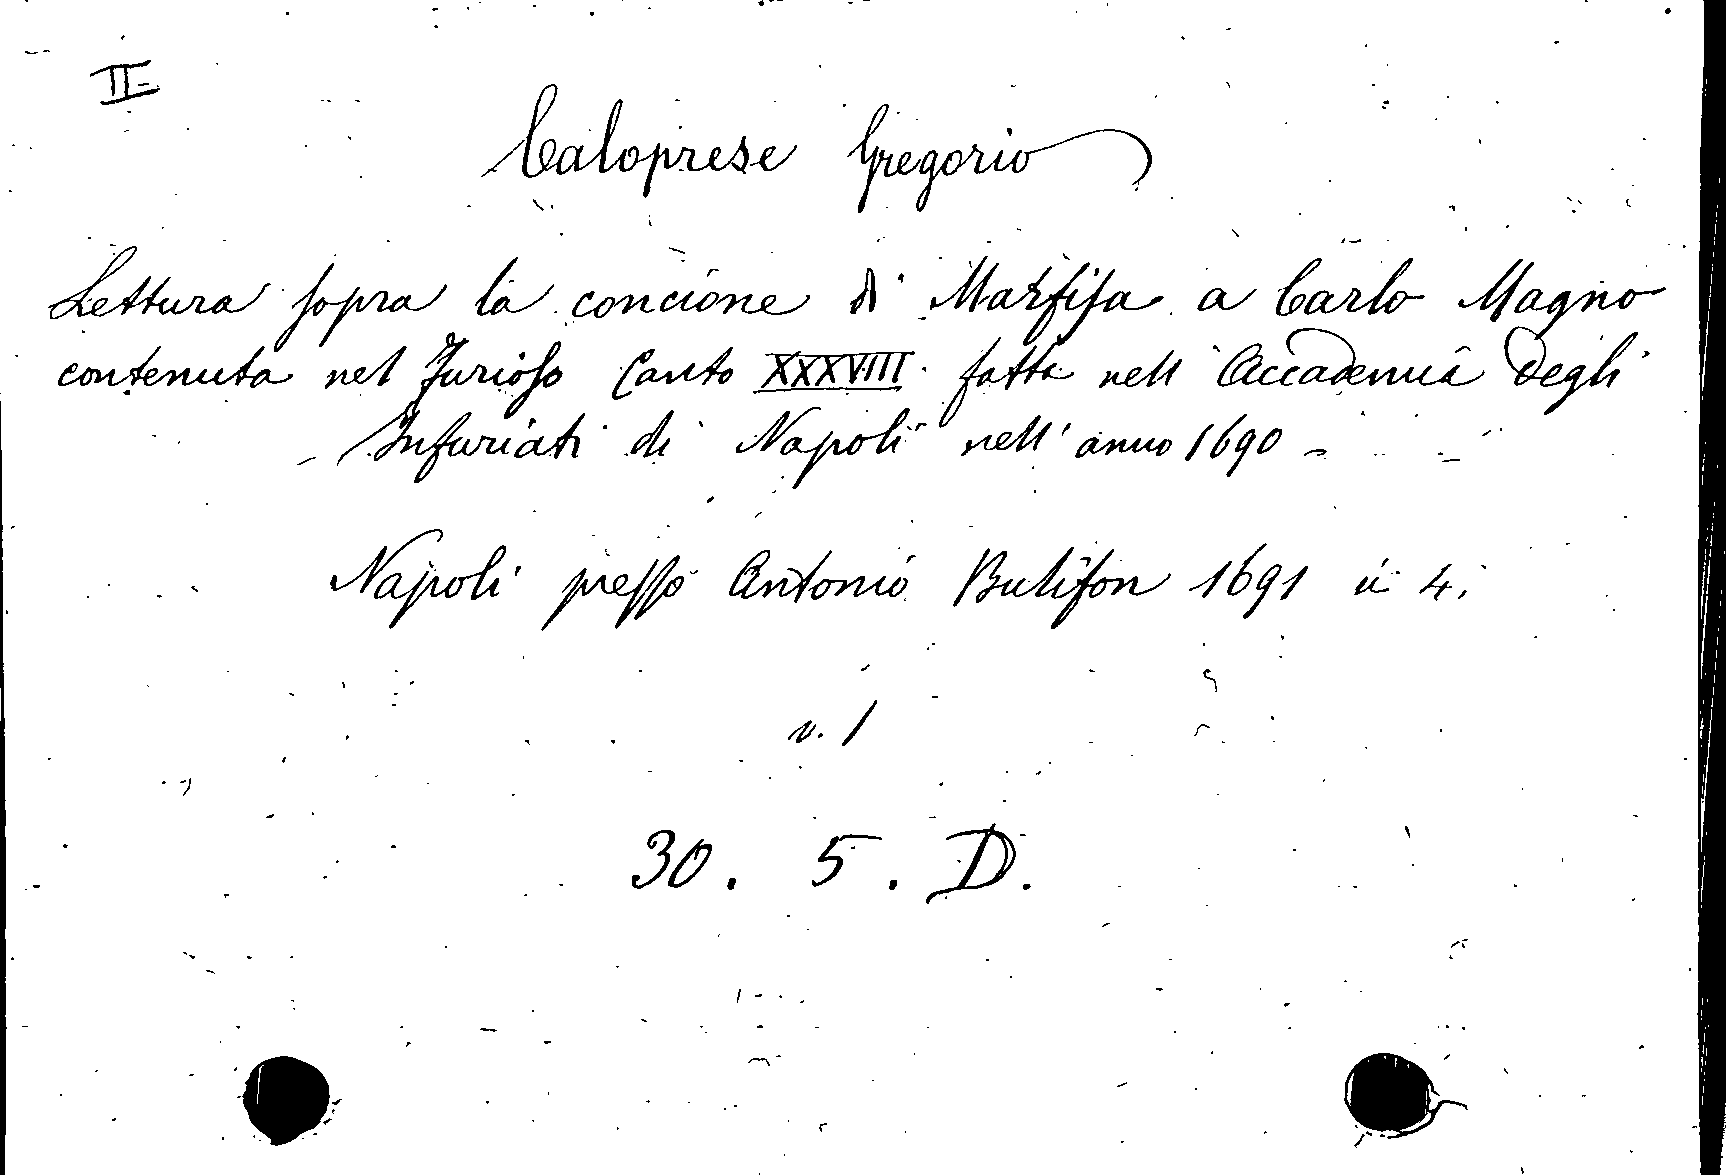 II
Caloprese Gregorio
Lettura sopra la concione di Marfisa a Carlo Magno
contenuta nel Furioso Canto XXXVIII fatta nell' Accademia degli
Infuriati di Napoli nell' anno 1690 -
Napoli presso Antonio Bulifon 1691 in 4.
v. 1
30. 5. D.